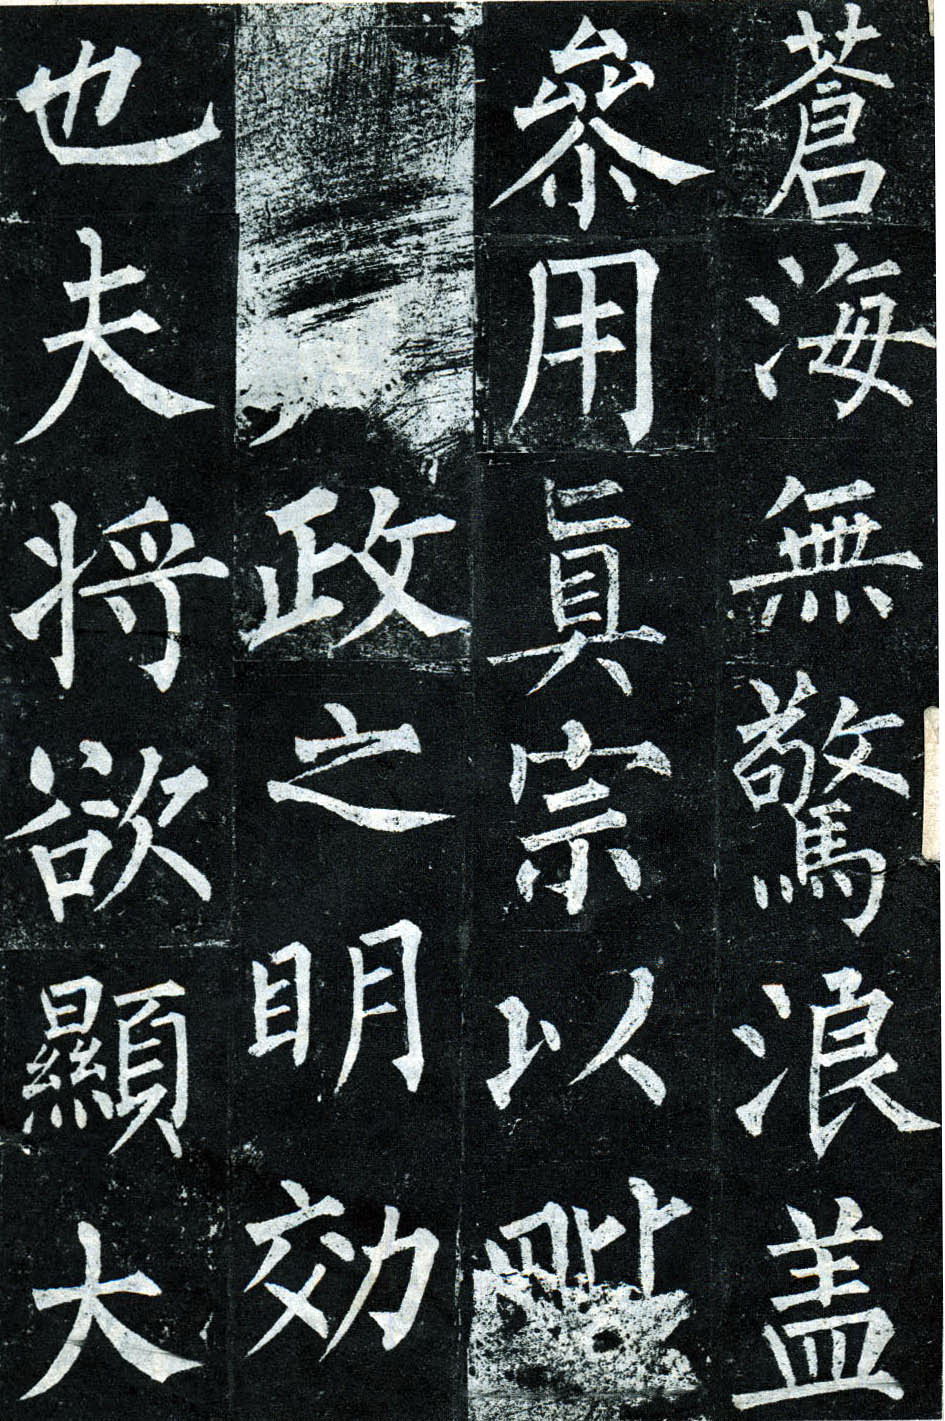 蒼海無驚浪盖
叅用眞宗以
政之眀効
也夫將欲顯大